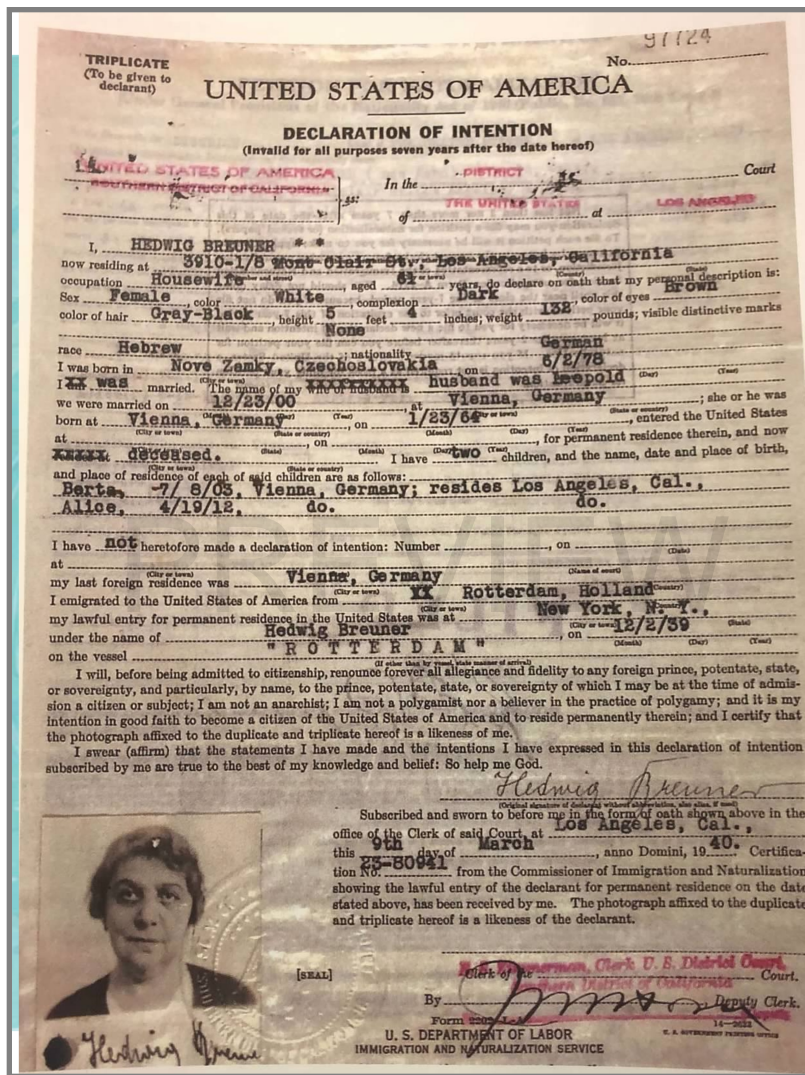 97724
TRIPLICATE
(To be given to
declarant)
No.
UNITED STATES OF AMERICA
DECLARATION OF INTENTION
(Invalid for all purposes seven years after the date hereof)
UNITED STATES OF AMERICA
SOUTHERN DISTRICT OF CALIFORNIA
ss:
In the DISTRICT Court
of THE UNITED STATES at LOS ANGELES
I, HEDWIG BREUNER * *
now residing at 3910-1/8 Mont Clair St., Los Angeles, California
occupation Housewife, aged 61 years, do declare on oath that my personal description is:
Sex Female, color White, complexion Dark, color of eyes Brown
color of hair Gray-Black, height 5 feet 4 inches; weight 132 pounds; visible distinctive marks
None
race Hebrew; nationality German
I was born in Nove Zamky, Czechoslovakia on 6/2/78
(City or town) (Day) (Year)
I XX was married. The name of my husband was Leopold
we were married on 12/23/00, at Vienna, Germany; she or he was
(Month) (Day) (Year) (City or town) (State or country)
born at Vienna, Germany, on 1/23/64, entered the United States
(City or town) (State or country) (Month) (Day) (Year)
at, on, for permanent residence therein, and now
XXXXX deceased. I have two children, and the name, date and place of birth,
(City or town) (State or country)
and place of residence of each of said children are as follows:
Berta, -7/ 8/03, Vienna, Germany; resides Los Angeles, Cal.,
Alice, 4/19/12, do. do.
I have not heretofore made a declaration of intention: Number, on
(Date)
at
(City or town) (Name of court)
my last foreign residence was Vienna, Germany
(City or town) (Country)
I emigrated to the United States of America from XX Rotterdam, Holland
(City or town)
my lawful entry for permanent residence in the United States was at New York, N. Y.,
(City or town) (State)
under the name of Hedwig Breuner, on 12/2/39
(Month) (Day) (Year)
on the vessel "ROTTERDAM"
(If other than by vessel, state manner of arrival)
I will, before being admitted to citizenship, renounce forever all allegiance and fidelity to any foreign prince, potentate, state,
or sovereignty, and particularly, by name, to the prince, potentate, state, or sovereignty of which I may be at the time of admis-
sion a citizen or subject; I am not an anarchist; I am not a polygamist nor a believer in the practice of polygamy; and it is my
intention in good faith to become a citizen of the United States of America and to reside permanently therein; and I certify that
the photograph affixed to the duplicate and triplicate hereof is a likeness of me.
I swear (affirm) that the statements I have made and the intentions I have expressed in this declaration of intention
subscribed by me are true to the best of my knowledge and belief: So help me God.
Hedwig Breuner
(Original signature of declarant without abbreviation, also alias, if used)
Subscribed and sworn to before me in the form of oath shown above in the
office of the Clerk of said Court, at Los Angeles, Cal.,
this 9th day of March, anno Domini, 1940. Certifica-
tion No. 23-80941 from the Commissioner of Immigration and Naturalization
showing the lawful entry of the declarant for permanent residence on the date
stated above, has been received by me. The photograph affixed to the duplicate
and triplicate hereof is a likeness of the declarant.
Zimmerman, Clerk U. S. District Court,
[SEAL]
Clerk of the Court.
Southern District of California
By Deputy Clerk.
Form 2202-L-A
14-2622
U. S. GOVERNMENT PRINTING OFFICE
U. S. DEPARTMENT OF LABOR
IMMIGRATION AND NATURALIZATION SERVICE
Hedwig Breuner